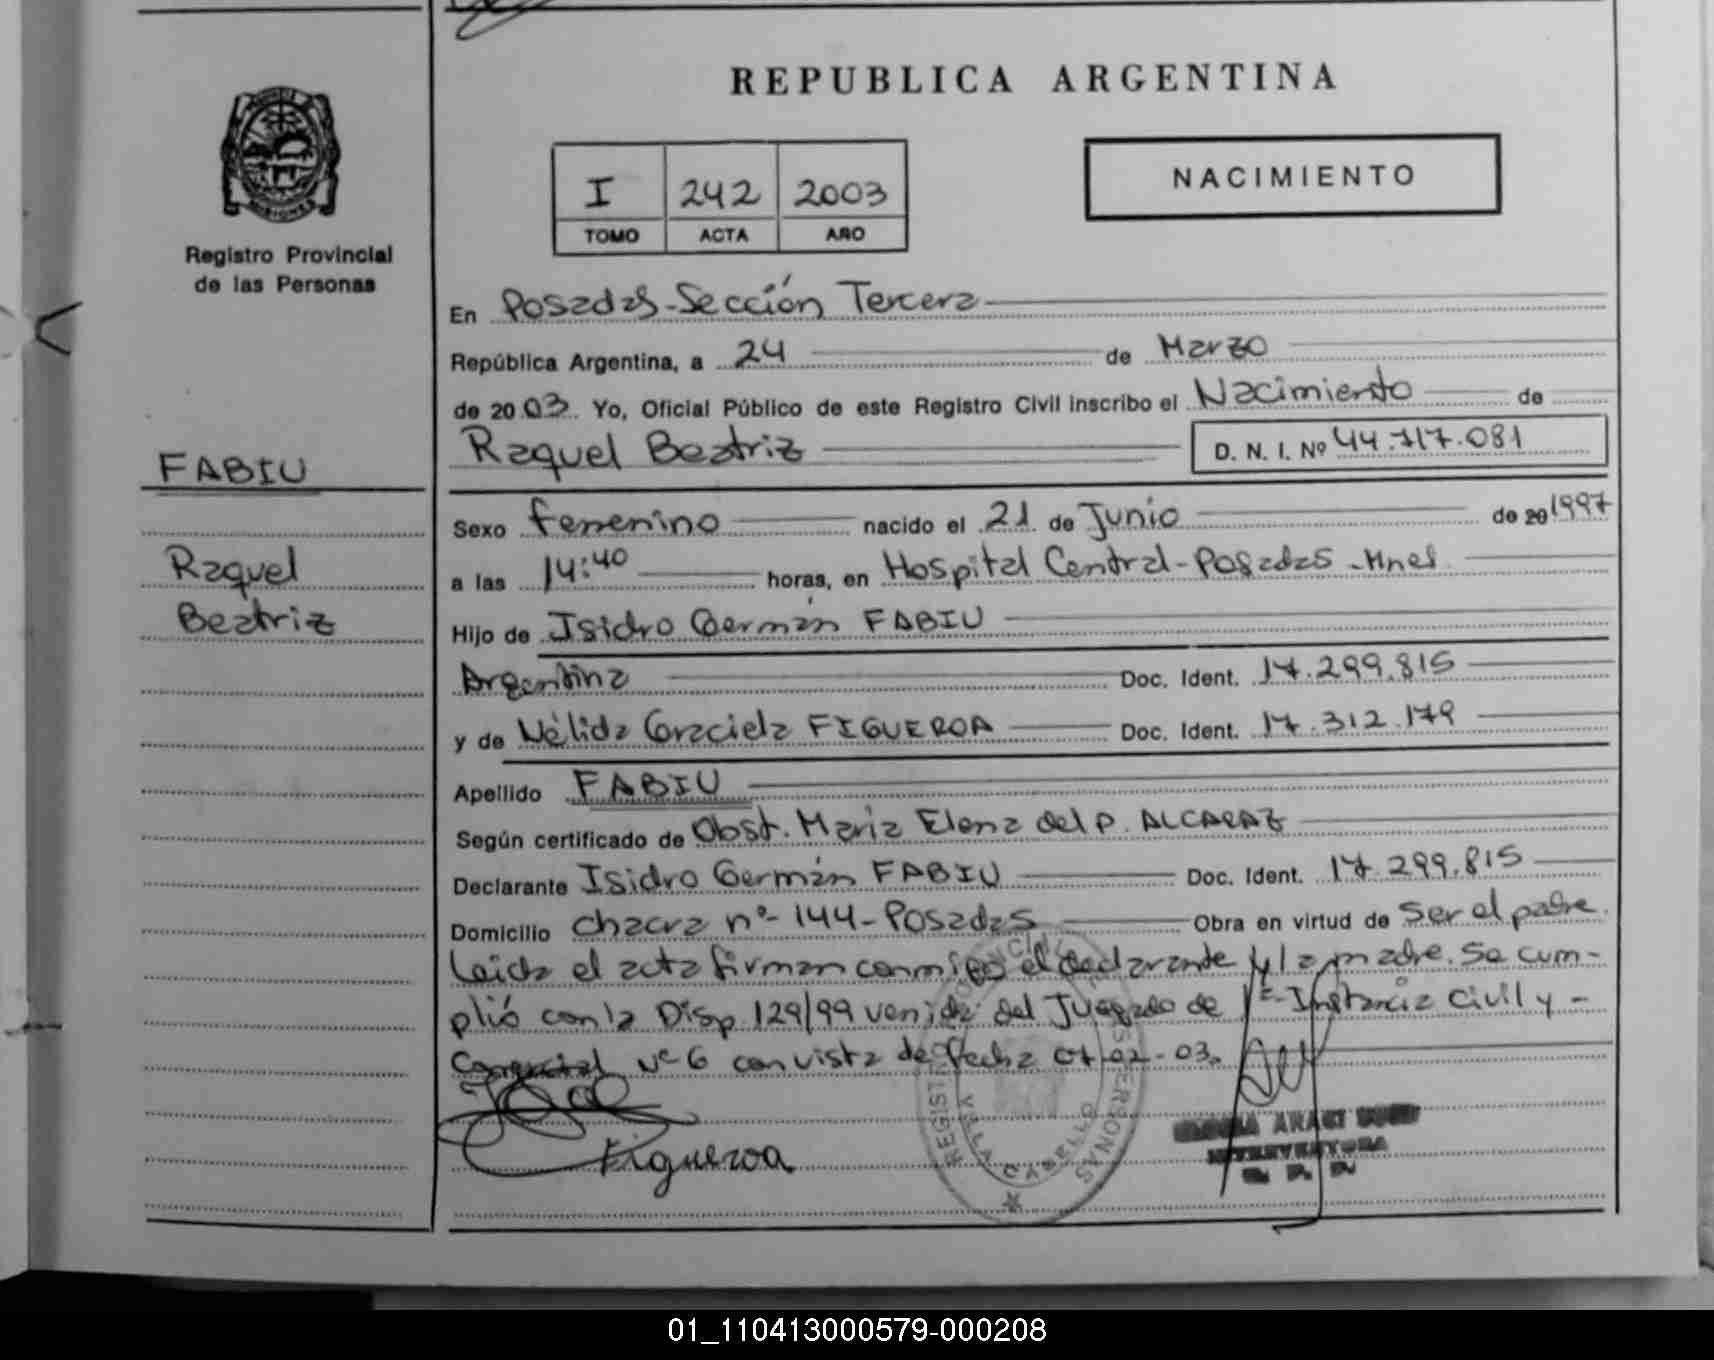 REPUBLICA ARGENTINA
MISIONES
Registro Provincial
de las Personas
I 242 2003
TOMO ACTA AÑO
NACIMIENTO
En Posadas-Sección Tercera
República Argentina, a 24 de Marzo
de 2003. Yo, Oficial Público de este Registro Civil inscribo el Nacimiento de
Raquel Beatriz D. N. I. Nº 44.717.081
FABIU
Raquel
Beatriz
Sexo femenino nacido el 21 de Junio de 20 1997
a las 14:40 horas, en Hospital Central-Posadas-Mnes
Hijo de Isidro Germán FABIU
Argentina Doc. Ident. 17.299.815
y de Nélida Graciela FIGUEROA Doc. Ident. 17.312.179
Apellido FABIU
Según certificado de Obst. Maria Elena del P. ALCARAZ
Declarante Isidro Germán FABIU Doc. Ident. 17.299.815
Domicilio chacra nº 144-Posadas Obra en virtud de ser el padre.
Leida el acta firman conmigo el declarante y la madre. Se cum-
plió con la Disp. 129/99 venida del Juzgado de 1ª Instancia Civil y -
Comercial Nº 6 con vista de fecha 07-02-03.
Figueroa
ARASI
INTERVENTORA
01_110413000579-000208